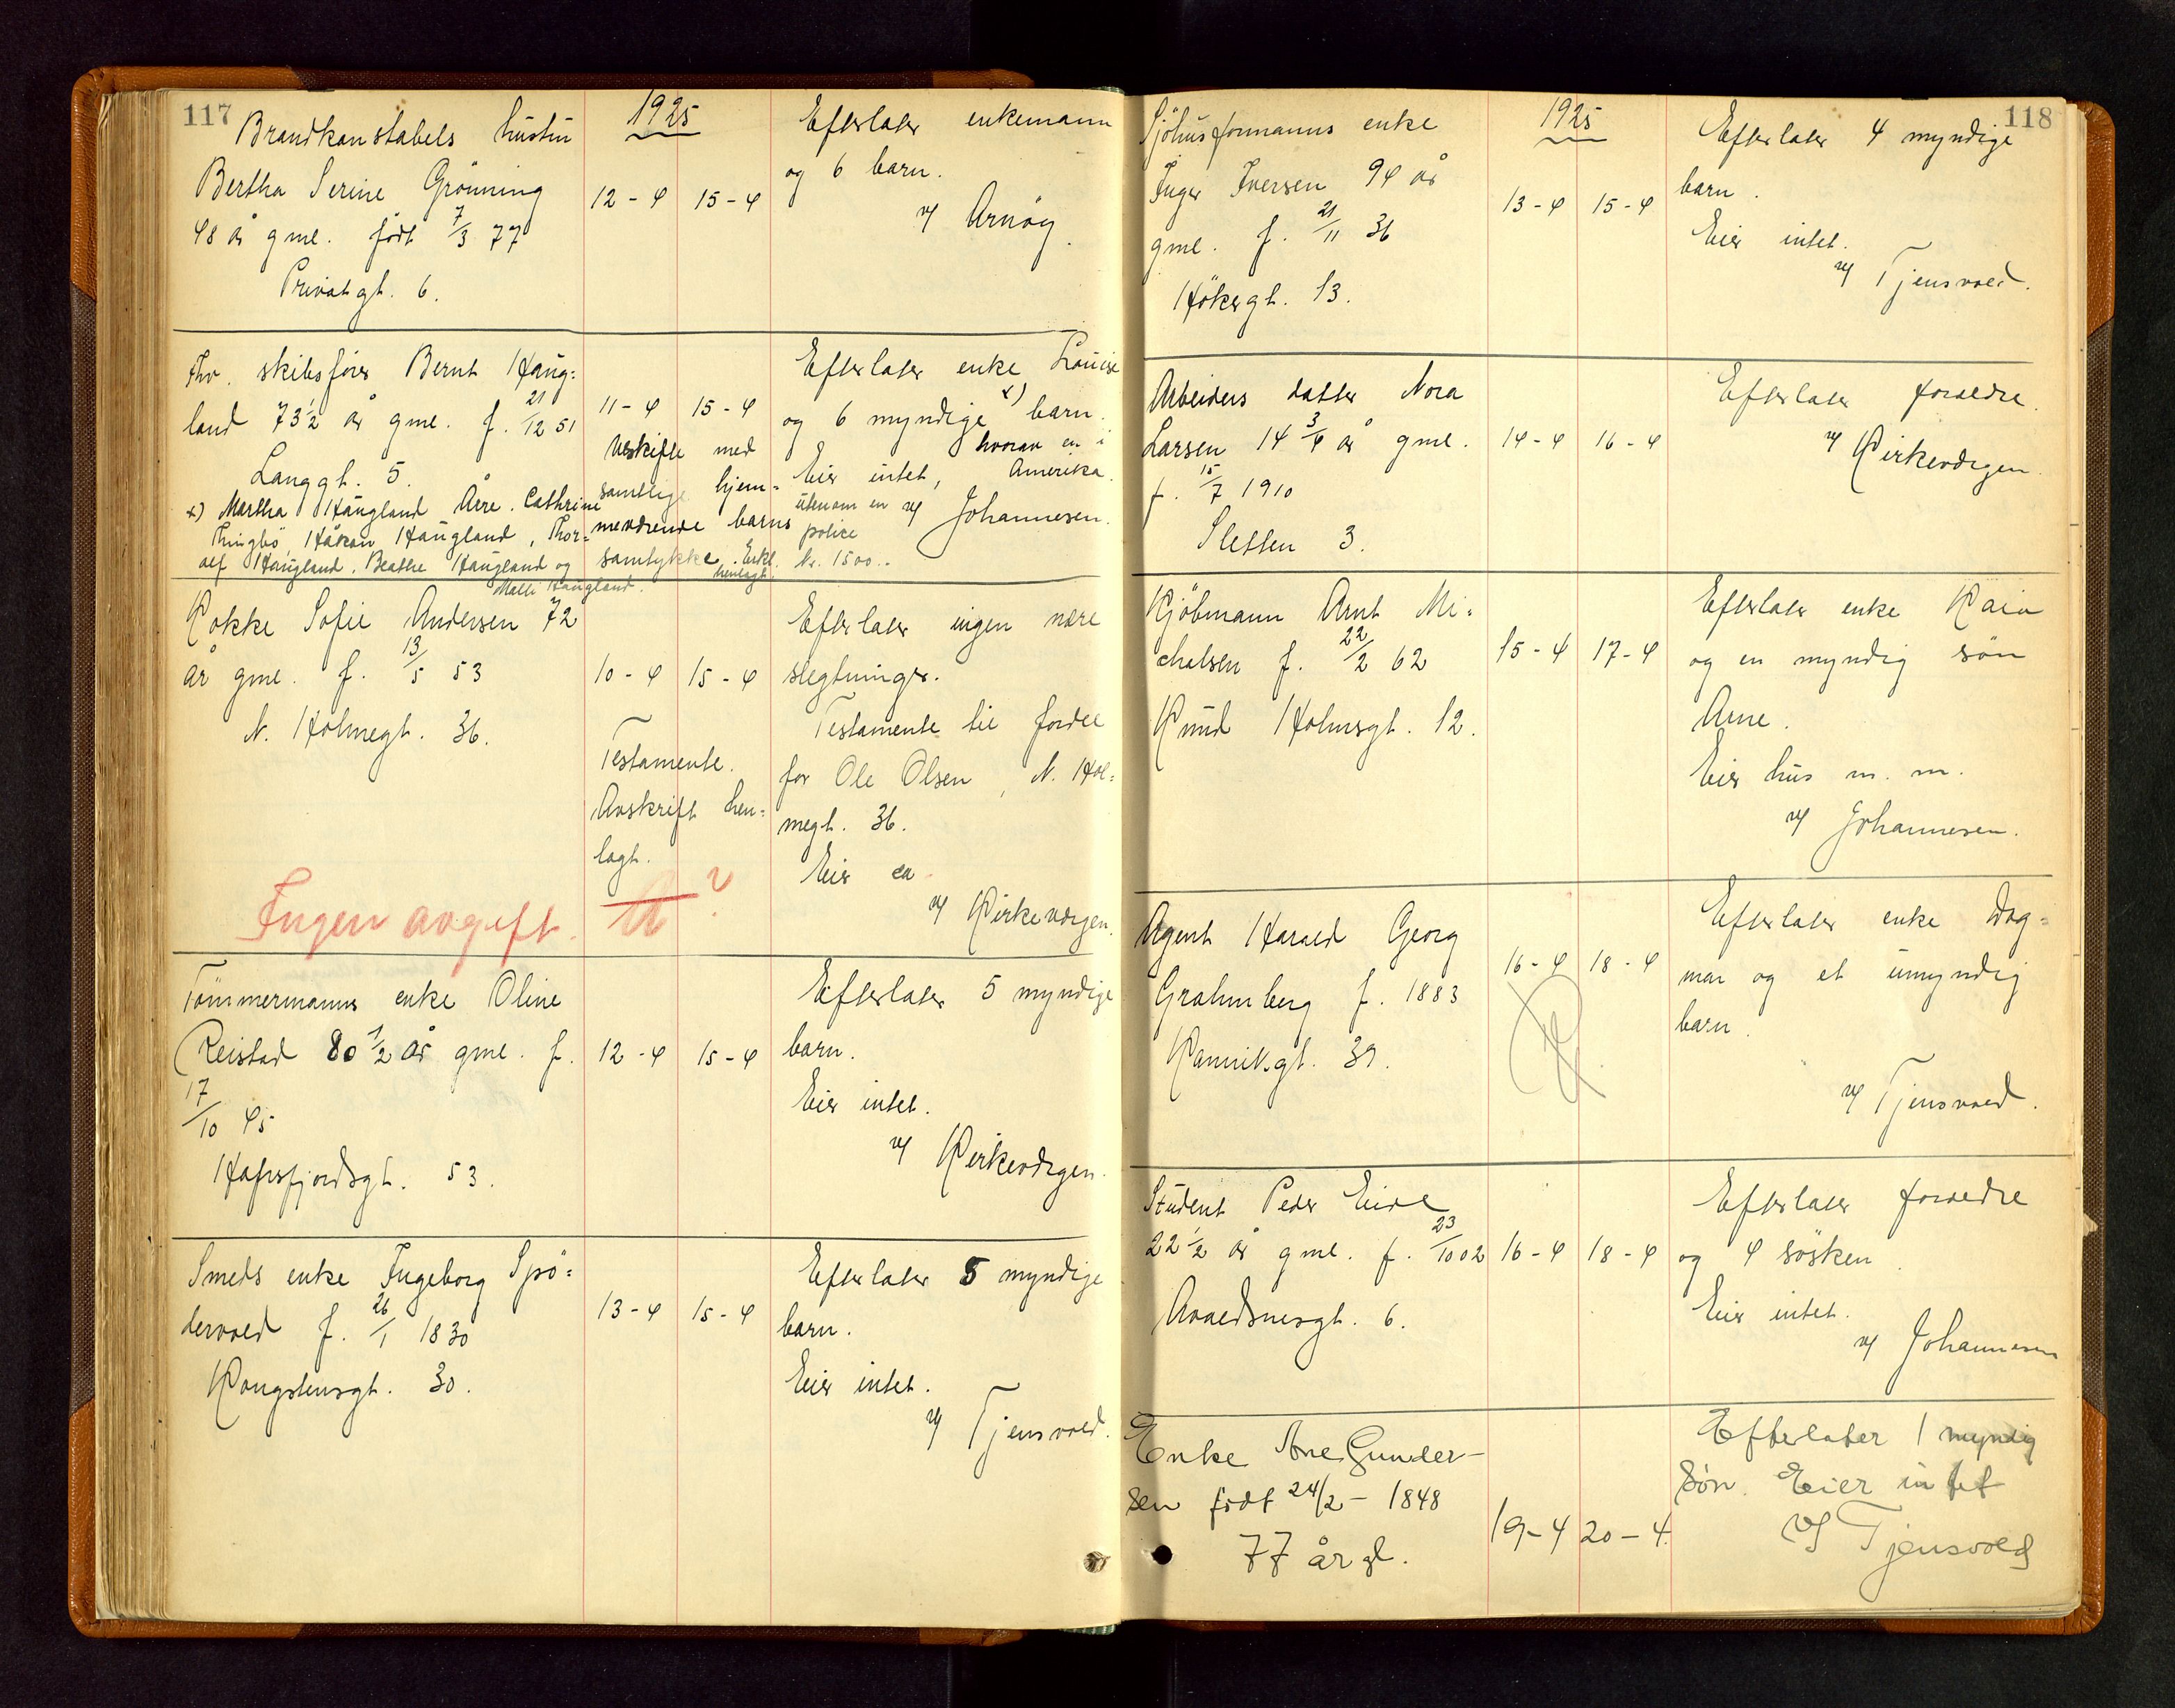 117
1925
Brandkonstabels hustru
Bertha Serine Grönning
48 år gml. født 7/3 77
Privatgt. 6.
12-4 15-4
Efterlater enkemann
og 6 barn.
v/ Arnöy.
Fhv. skibsfører Bernt Haug=
land 73½ år gml. f. 21/12 51
Langgt. 5.
x) Martha Haugland Aree. Cathrine
Tringbö, Håkon Haugland, Thor=
alf Haugland. Beathe Haugland og
Malli Haugland.
11-4 15-4
Uskifte med
samtlige hjem=
meværende barns
samtykke. Erkl.
henlagt.
Efterlater enke Louise
og 6 myndige x) barn.
hvorav en i
Amerika.
Eier intet,
utenom en
police
kr. 1500..
v/ Johannesen.
Kokke Sofie Andersen 72
år gml. f. 13/5 53
N. Holmegt. 36.
10-4 15-4
Testamente.
Avskrift hen=
lagt.
Ingen avgift.
A ?
Efterlater ingen nære
slegtninger.
Testamente til fordel
for Ole Olsen, N. Hol=
megt. 36.
Eier ca
v/ Kirkevergen.
Tömmermanns enke Oline
Reistad 80½ år gml. f.
17/10 45
Hafrsfjordsgt. 53.
12-4 15-4
Efterlater 5 myndige
barn.
Eier intet.
v/ Kirkevergen.
Smeds enke Ingeborg Spö=
dervold f. 26/1 1830
Kongstensgt. 30.
13-4 15-4
Efterlater 5 myndige
barn.
Eier intet.
v/ Tjensvold.
118
1925
Sjöhusformanns enke
Inger Iversen 94 år
gml. f. 21/11 36
Hökergt. 13.
13-4 15-4
Efterlater 4 myndige
barn.
Eier intet.
v/ Tjensvold.
Arbeiders datter Nora
Larsen 14 3/4 år gml.
f. 15/7 1910
Sletten 3.
14-4 16-4
Efterlater foreldre.
v/ Kirkevergen.
Kjöbmann Arnt Mi=
chalsen f. 22/2 62
Knud Holmsgt. 12.
15-4 17-4
Efterlater enke Kaia
og en myndig sön
Arne.
Eier hus m. m.
v/ Johannesen.
Agent Harald Georg
Grahmberg f. 1883
Kannikgt. 39.
16-4 18-4
Efterlater enke Dag=
mar og et umyndig
barn.
v/ Tjensvold.
Student Peder Eide
22½ år gml. f. 23/10 02
Avaldsnesgt. 6.
16-4 18-4
Efterlater foreldre
og 4 søsken.
Eier intet.
v/ Johannesen
Enke Ane Gunder-
sen født 24/2 - 1848
77 år gl.
19-4 20-4.
Efterlater 1 myndig
sön. Eier intet
v/ Tjensvold